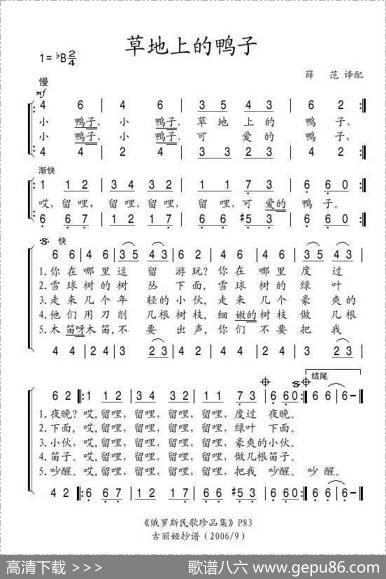 草地上的鸭子
1=♭B 2/4
薛 范 译配
慢
mf
4 6 | 4 6 | 3 5 4 3 | 6 4 |
小 鸭子, 小 鸭子, 草 地 上 的 鸭 子,
小 鸭子, 小 鸭子, 可 爱 的 鸭 子,
4 2 | 4 2 | 3 3 2 3 | 2 4 |
渐快
1 1 2 | 3 4 1 2 | 3 4 1 2 | 1 1 7 3 | 6 6 0 |
哎, 留 哩, 留 哩, 留 哩, 留 哩, 可 爱的 鸭 子。
6 6 7 | 1 2 6 7 | 1 2 6 7 | 6 6 #5 3 | 6 6 0 |
快
1 2 3 4 | 6 6 | 3 5 4 3 | 6 4 | 1 2 3 4 | 6 6 | 3 5 4 3 |
1.你 在 哪 里 逗 留 游玩? 你 在 哪 里 度 过
2.雪 球 树 的 树 丛 下 面, 雪 球 树 的 绿 叶
3.走 来 几 个 年 轻 的 小 伙, 走 来 几 个 豪 爽 的
4.他 们 用 刀 削 几根 树 枝, 细 嫩的 树 枝 做 几 根
5.木 笛呀木 笛,不 要 出 声, 你 们 不 要 把 我
6 2 1 1 2 | 3 4 1 2 | 3 4 1 2 | 1 1 7 3 | 6 6 0 | 6 6 | 6 - |
结尾
1.夜晚? 哎, 留哩, 留哩, 留哩, 留哩, 度过 夜晚。
2.下面, 哎, 留哩, 留哩, 留哩, 留哩, 绿叶 下面。
3.小伙, 哎, 留哩, 留哩, 留哩, 留哩, 豪爽的小伙。
4.笛子。 哎, 留哩, 留哩, 留哩, 留哩, 做几根笛子。
5.吵醒。 哎, 留哩, 留哩, 留哩, 留哩, 把我 吵醒。 吵 醒。
4 2 6 6 7 | 1 2 6 7 | 1 2 6 7 | 6 6 #5 3 | 6 6 0 | 6 6 | 6 - |
《俄罗斯民歌珍品集》P83
古丽娅抄谱(2006/9)
高清下载 >>>
歌谱八六 www.gepu86.com